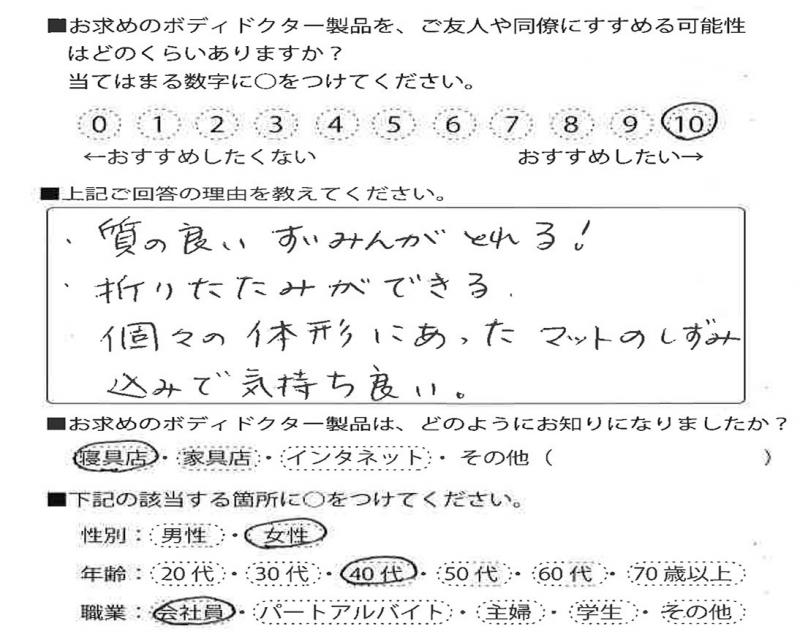 ■お求めのボディドクター製品を、ご友人や同僚にすすめる可能性
はどのくらいありますか？
当てはまる数字に○をつけてください。
0 1 2 3 4 5 6 7 8 9 10
←おすすめしたくない おすすめしたい→
■上記ご回答の理由を教えてください。
・質の良い すいみんが とれる!
・折りたたみができる.
個々の体形にあった マットのしずみ
込みで気持ち良い。
■お求めのボディドクター製品は、どのようにお知りになりましたか？
寝具店・家具店・インタネット・その他（ ）
■下記の該当する箇所に○をつけてください。
性別：男性・女性
年齢：20代・30代・40代・50代・60代・70歳以上
職業：会社員・パートアルバイト・主婦・学生・その他